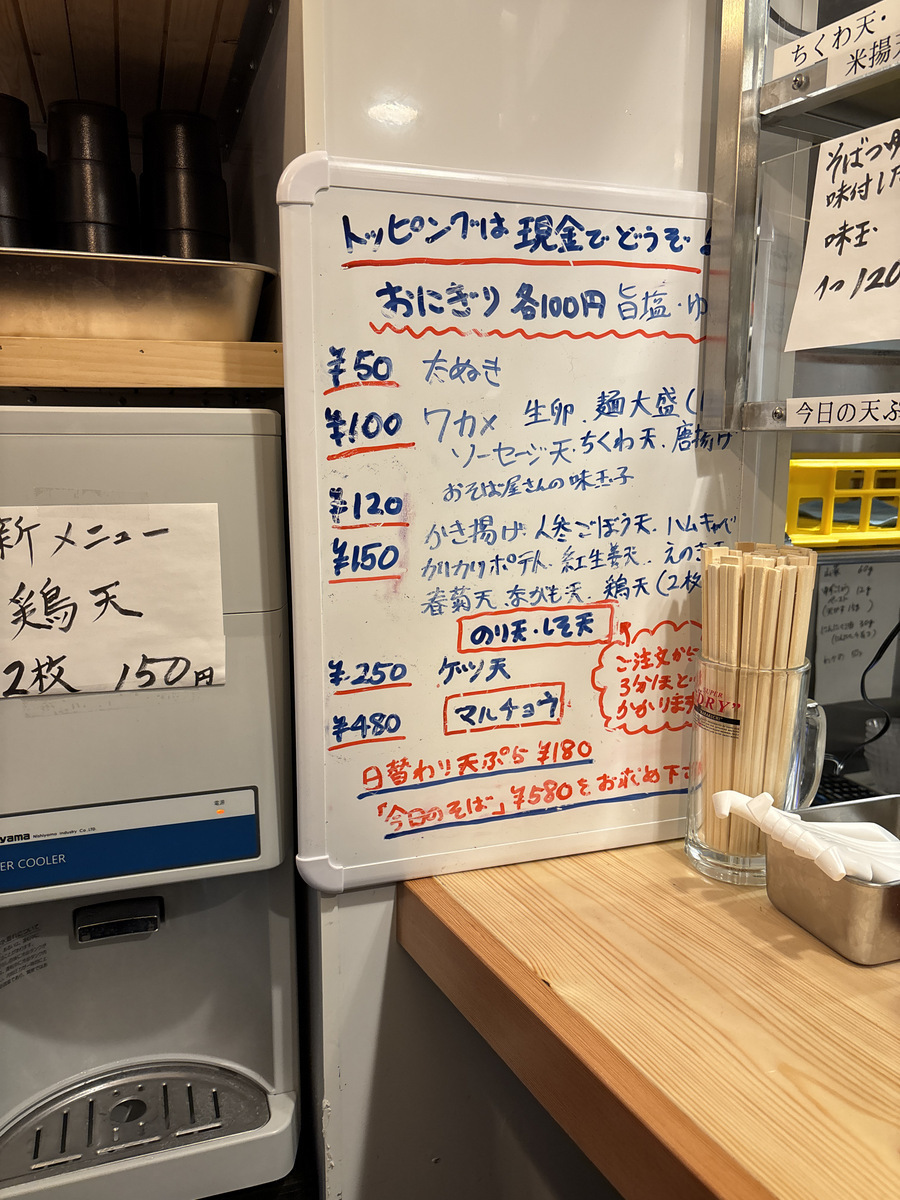 トッピングは 現金で どうぞ
おにぎり 各100円 旨塩・ゆ
¥50 たぬき
¥100 ワカメ 生卵、麺大盛(
ソーセージ天、ちくわ天、唐揚げ
¥120 おそば屋さんの味玉子
¥150 かき揚げ、人参ごぼう天、ハムキャベ
カリカリポテト、紅生姜天、えのき天
春菊天、なかも天、鶏天(2枚
のり天・しそ天
ご注文から
3分ほど
かかります
¥250 ゲソ天
¥480 マルチョウ
日替わり天ぷら ¥180
「今日のそば」¥580をお求め下さ
新メニュー
鶏天
2枚 150円
電源
yama Nishiyama Industry Co.,LTD.
ER COOLER
ちくわ天・
米揚
そばつゆ
味付し
味玉
1つ 120
今日の天ぷ
DRY"